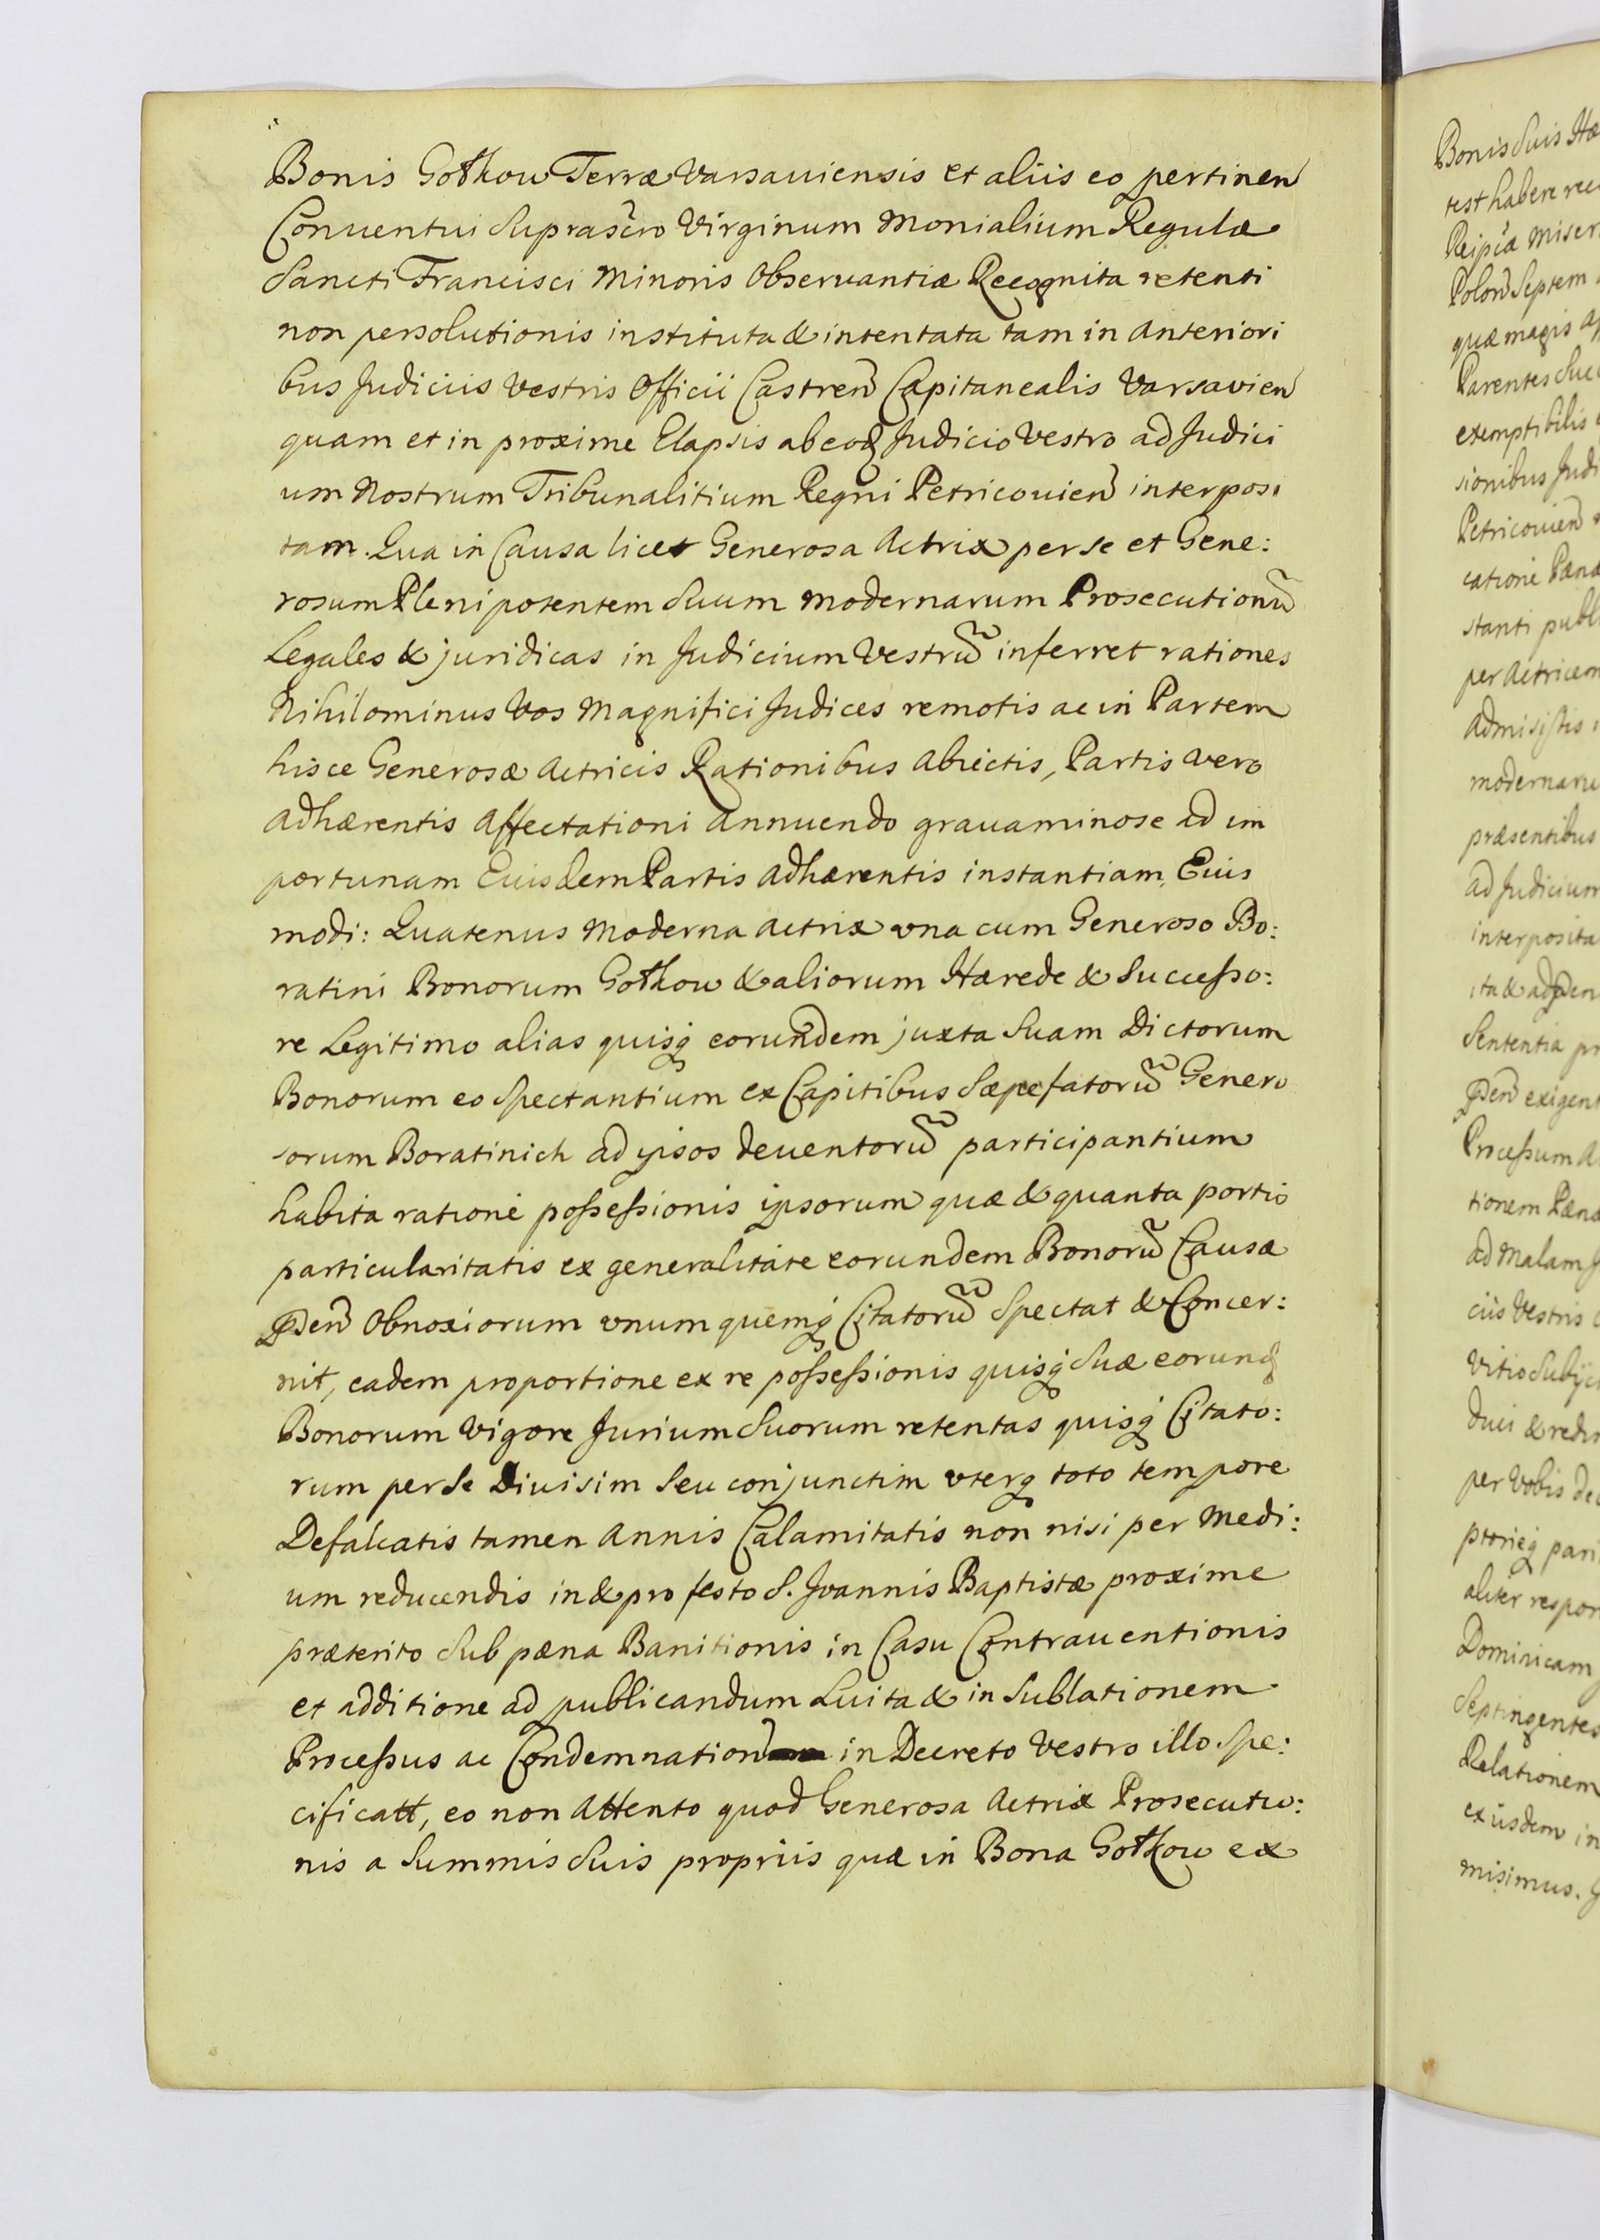 Bonis Gothow Terræ Varsauiensis et aliis eo pertinen̄
Conuentui Suprascr̄o Virginum Monialium Regulæ
Sancti Francisci Minoris Obseruantiæ Recognita retenti
non persolutionis instituta & intentata tam in anteriori
bus Judiciis Vestris Officii Castren̄ Capitanealis Varsavien̄
quam et in proxime Elapsis ab eoq̨ Judicio Vestro ad Judici
um Nostrum Tribunalitium Regni Petricouien̄ interposi
tam. Qua in Causa licet Generosa Actrix per se et Gene:
rosum Plenipotentem Suum modernarum Prosecutionū
Legales & juridicas in Judicium Vestrū inferret rationes
Nihilominus Vos Magnifici Judices remotis ac in Partem
hisce Generosæ Actricis Rationibus Abiectis, Partis vero
Adhærentis Affectationi annuendo grauaminose ad im
portunam Euisdem Partis adhærentis instantiam, Euis
modi: Quatenus Moderna Actrix vna cum Generoso Bo:
ratini Bonorum Gothow & aliorum Hærede & Successo:
re Legitimo alias quisq̨ eorundem juxta Suam Dictorum
Bonorum eo Spectantium ex Capitibus Sæpefatorū Genero
sorum Boratinich ad ipsos deuentorū participantium
habita ratione possessionis ipsorum quæ & quanta portio
particularitatis ex generalitate eorundem Bonorū Causæ
p̄den̄ Obnoxiorum vnumquemq̨ Citatorū Spectat & Concer:
nit, eadem proportione ex re possessionis quisq̨ Suæ eorunq̨
Bonorum Vigore Jurium Suorum retentas quisq̨ Citato:
rum per se Diuisim seu conjunctim vterq̨ toto tempore
Defalcatis tamen Annis Calamitatis non nisi per Medi:
um reducendis in & pro festo S. Joannis Baptistæ proxime
præterito Sub pæna Banitionis in Casu Contrauentionis
et additione ad publicandum Luita & in Sublationem
Processus ac Condemnation̄ in Decreto Vestro illo Spe:
cificatt, eo non Attento quod Generosa Actrix Prosecutio:
nis a Summis Suis propriis quæ in Bona Gothow ex
Bonis Suis Hæ
test habere
Reipc̄æ Miser
Polon̄ Septem
quæ magis
Parentes Suc
exemptibilis
sionibus Judi
Petricouien̄
catione Pæna
stanti publ
per Actricem
Admisistis
modernaru
præsentibus
ad Judicium
interposita
ita &
Sententia pr
p̄den̄ exigent
Processum A
tionem Pæna
ad Malam
ciis Vestris
Vitio Subijci
duci &
per Vobis de
ptoriq̨ pari
aliter respon
Dominicam
Septingentes
Relationem
exiisdem in
misimus.